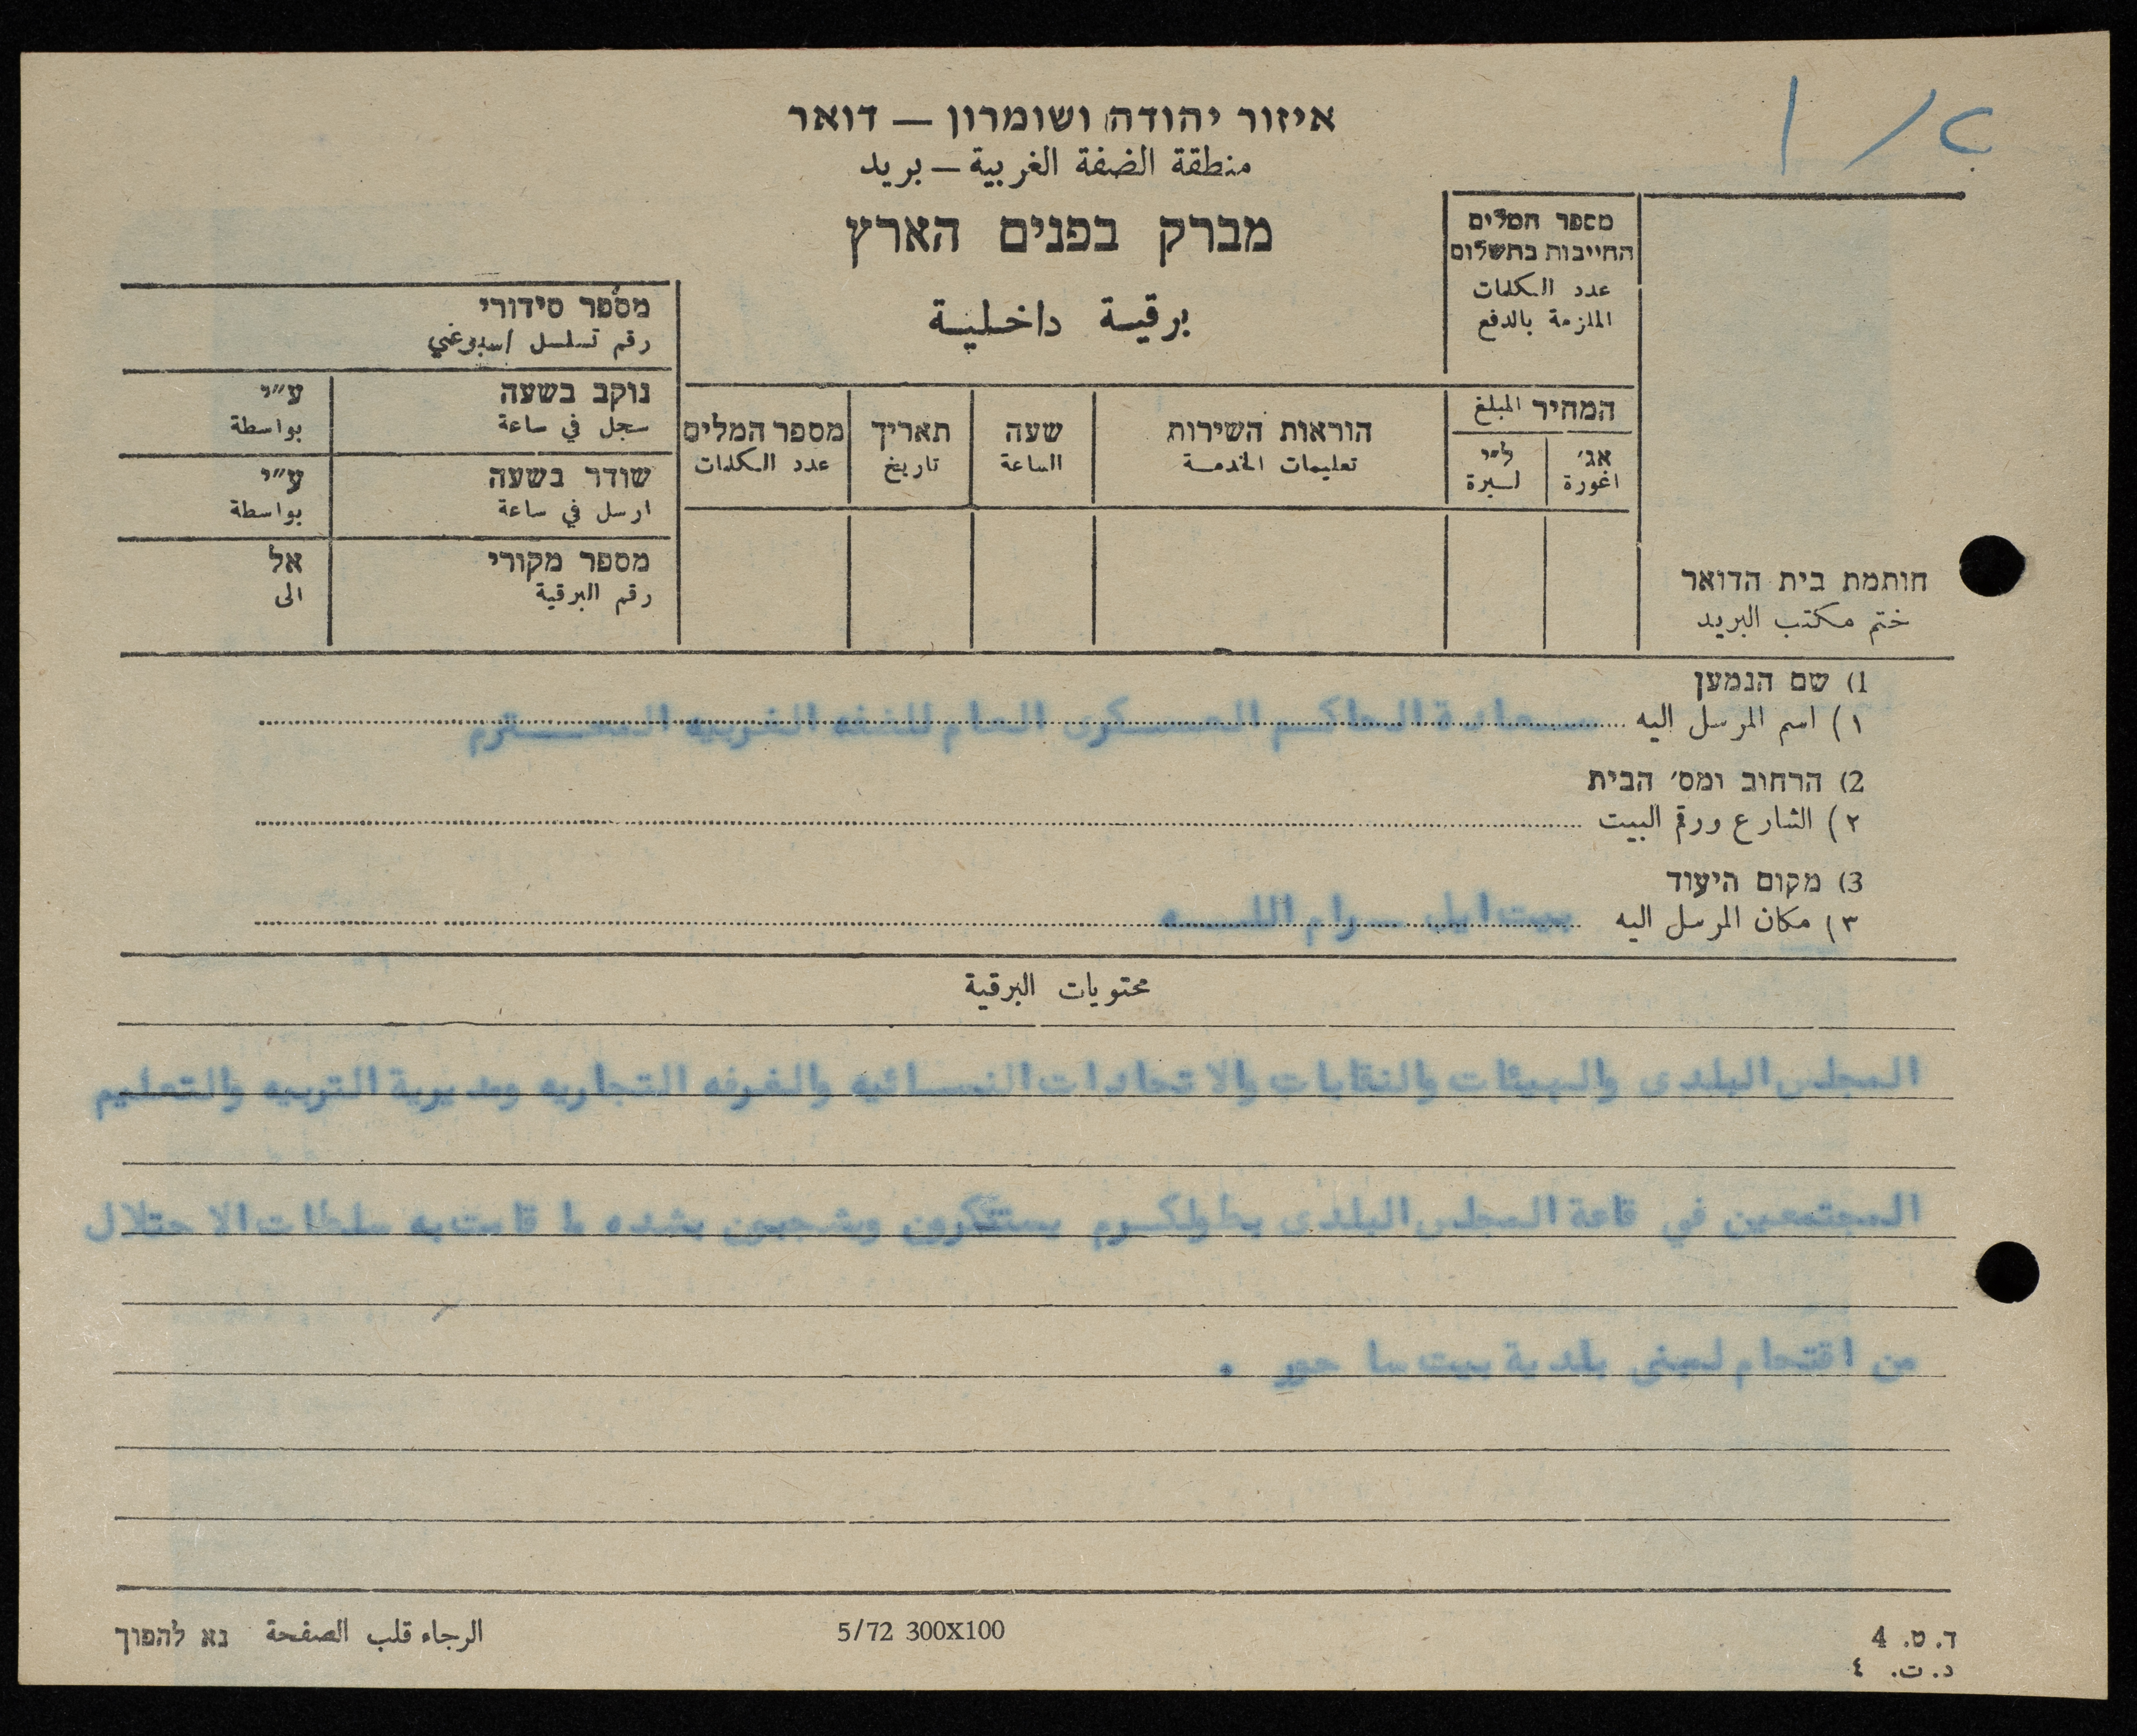 איזור יהודה ושומרון — דואר
منطقة الضفة الغربية — بريد
מברק בפנים הארץ
برقية داخلية
מספר המלים
החייבות בתשלום
عدد الكلمات
الملزمة بالدفع
מספר סידורי
رقم تسلسل
נוקב בשעה ע״י
سجل في ساعة بواسطة
שודר בשעה ע״י
ارسل في ساعة بواسطة
מספר מקורי אל
رقم البرقية الى
המחיר المبلغ
אג׳ ל״י
اغورة ليرة
הוראות השירות שעה תאריך מספר המלים
تعليمات الخدمة الساعة تاريخ عدد الكلمات
חותמת בית הדואר
ختم مكتب البريد
1) שם הנמען
١) اسم المرسل اليه سعادة الحاكم العسكرى العام للضفه الغربيه المحترم
2) הרחוב ומס׳ הבית
٢) الشارع ورقم البيت
3) מקום היעוד
٣) مكان المرسل اليه بيت ايل — رام الله
محتويات البرقية
المجلس البلدى والهيئات والنقابات والاتحادات النسائيه والغرفه التجاريه ومديرية التربيه والتعليم
المجتمعين في قاعة المجلس البلدى بطولكرم يستنكرون ويشجبون بشده ما قامت به سلطات الاحتلال
من اقتحام لمبنى بلدية بيت ساحور .
ד. ט. 4
د. ت. ٤
5/72 300X100
الرجاء قلب الصفحة נא להפוך